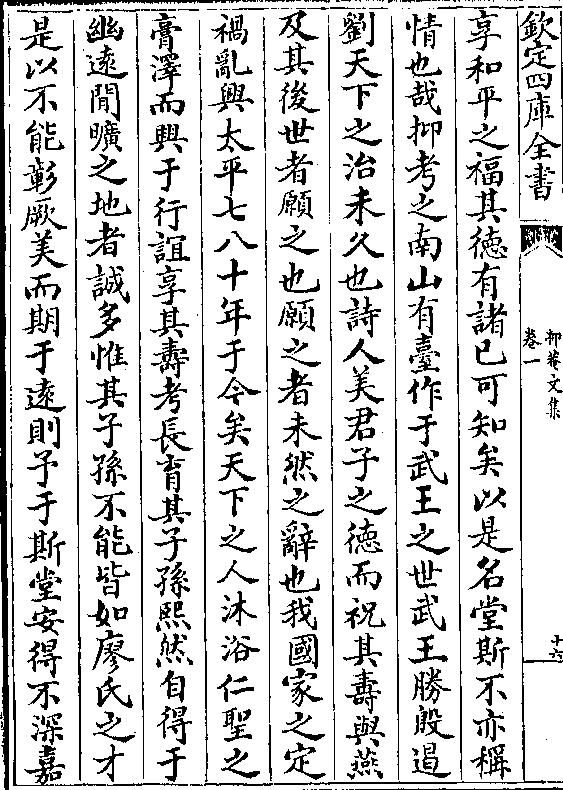 欽定四庫全書
抑菴文集
卷一
十六
享和平之福其徳有諸已可知矣以是名堂斯不亦稱
情也哉抑考之南山有臺作于武王之世武王勝殷遏
劉天下之治未久也詩人美君子之徳而祝其壽與燕
及其後世者願之也願之者未然之辭也我國家之定
禍亂興太平七八十年于今矣天下之人沐浴仁聖之
膏澤而興于行誼享其壽考長育其子孫熙然自得于
幽遠閒曠之地者誠多惟其子孫不能皆如廖氏之才
是以不能彰厥美而期于遠則予于斯堂安得不深嘉